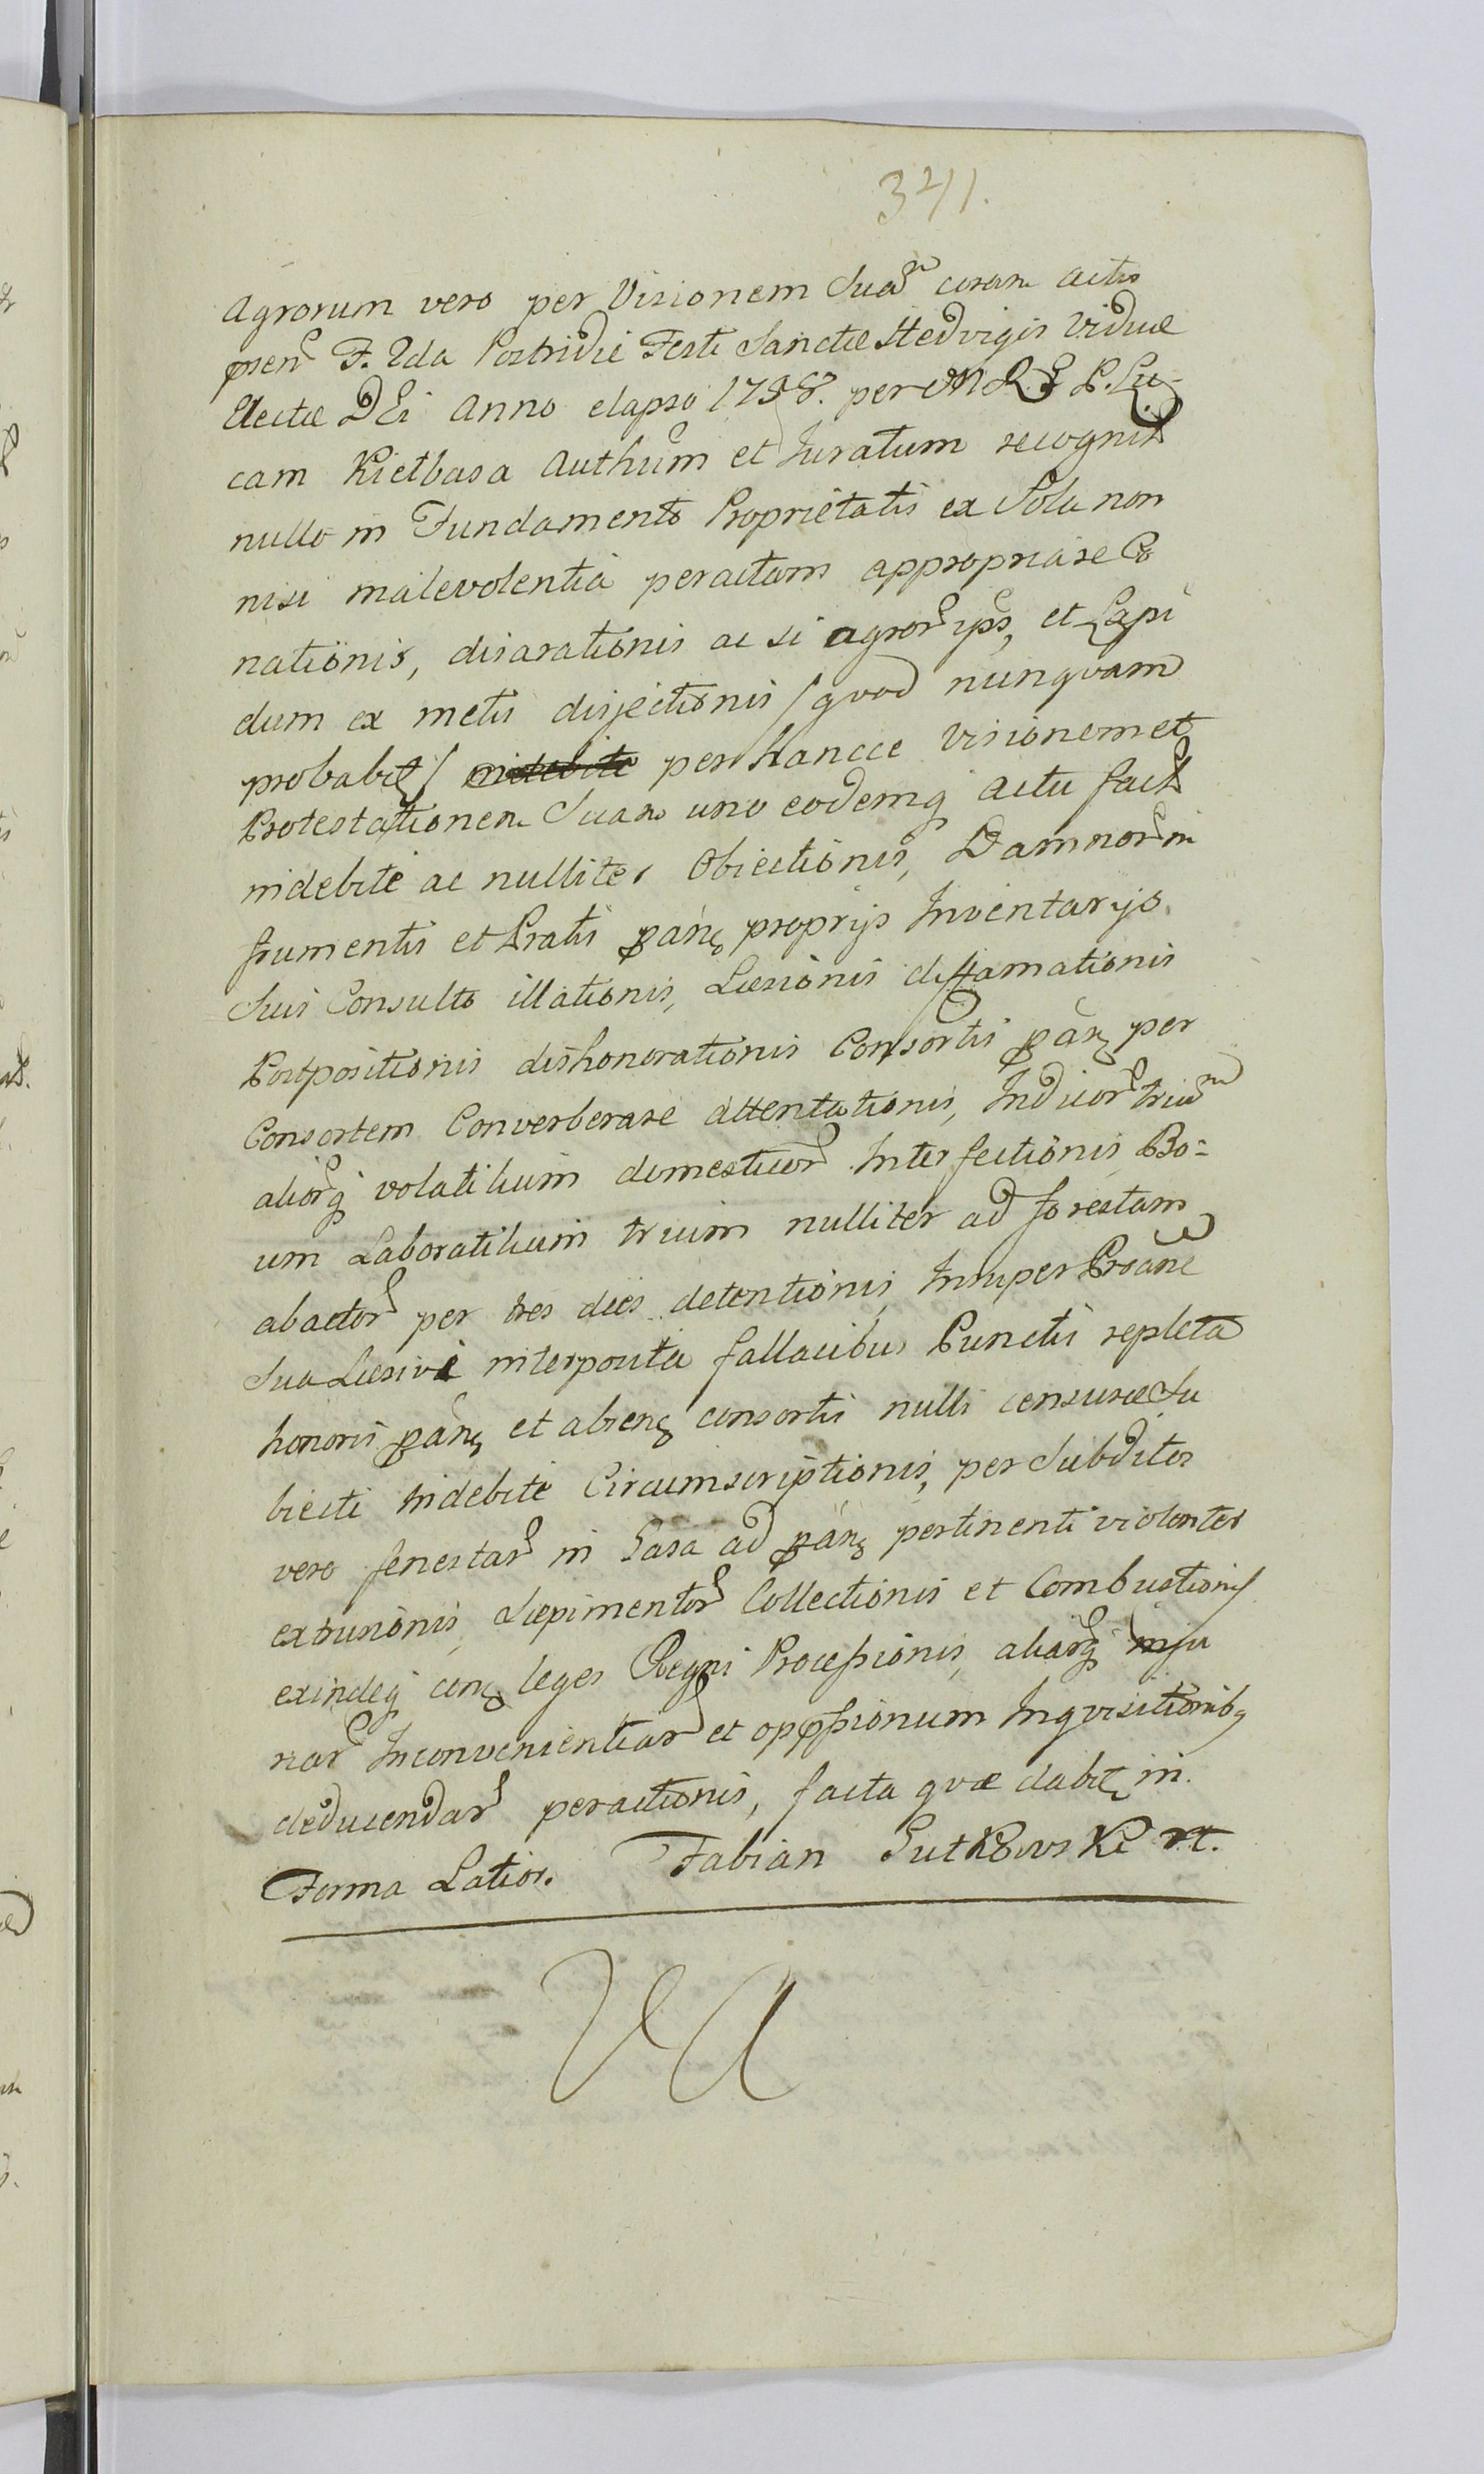 341.
Agrorum vero per Visionem Suam coram actis
præn F. 2da Postridie Festi Sanctæ Hedvigis Viduæ
Electæ DEi Anno elapso 1758. per
cam Kietbasa Authum et Juratum recognit
nullo in Fundamento Proprietatis ex Sola non
nisi malevolentia peractam appropriare Co
nationis, disarationis ac si agror ips, et Lapi
dum ex metis disjectionis / quod nunquam
probabit / per hancce Visionem et
Protestationem Suam uno eodemq actu fact
indebite ac nulliter Obiectionis, Damnor in
frumentis et Pratis pang proprijs Inventarijs
Suis Consulto illationis, Læsionis diffamationis
Postpositionis dishonorationis Consortis pang per
Consortem Converberare attentationis, Indicor trium
aliorq volatilium domesticor Interfectionis, Bo=
um Laboratilium trium nulliter ad forestam
abactor per tres dies detentionis, Insuper
Sua Læsive interposita fallacibus Punctis repleta
honoris pang et absens consortis nulli censuræ Su
biecti Indebite Circumscriptionis, per Subditos
vero fenestar in Casa ad pang pertinenti violenter
extrusionis, Sæpimentor Collectionis et Combustionis
exindeq cong leges Regni Processionis, aliarq inju
riar Inconvenientiar et oppssionum Inqvisitionibg
deducendar peractionis, facta qvæ dabit in
Forma Latior. Fabian Sutkowski mt.